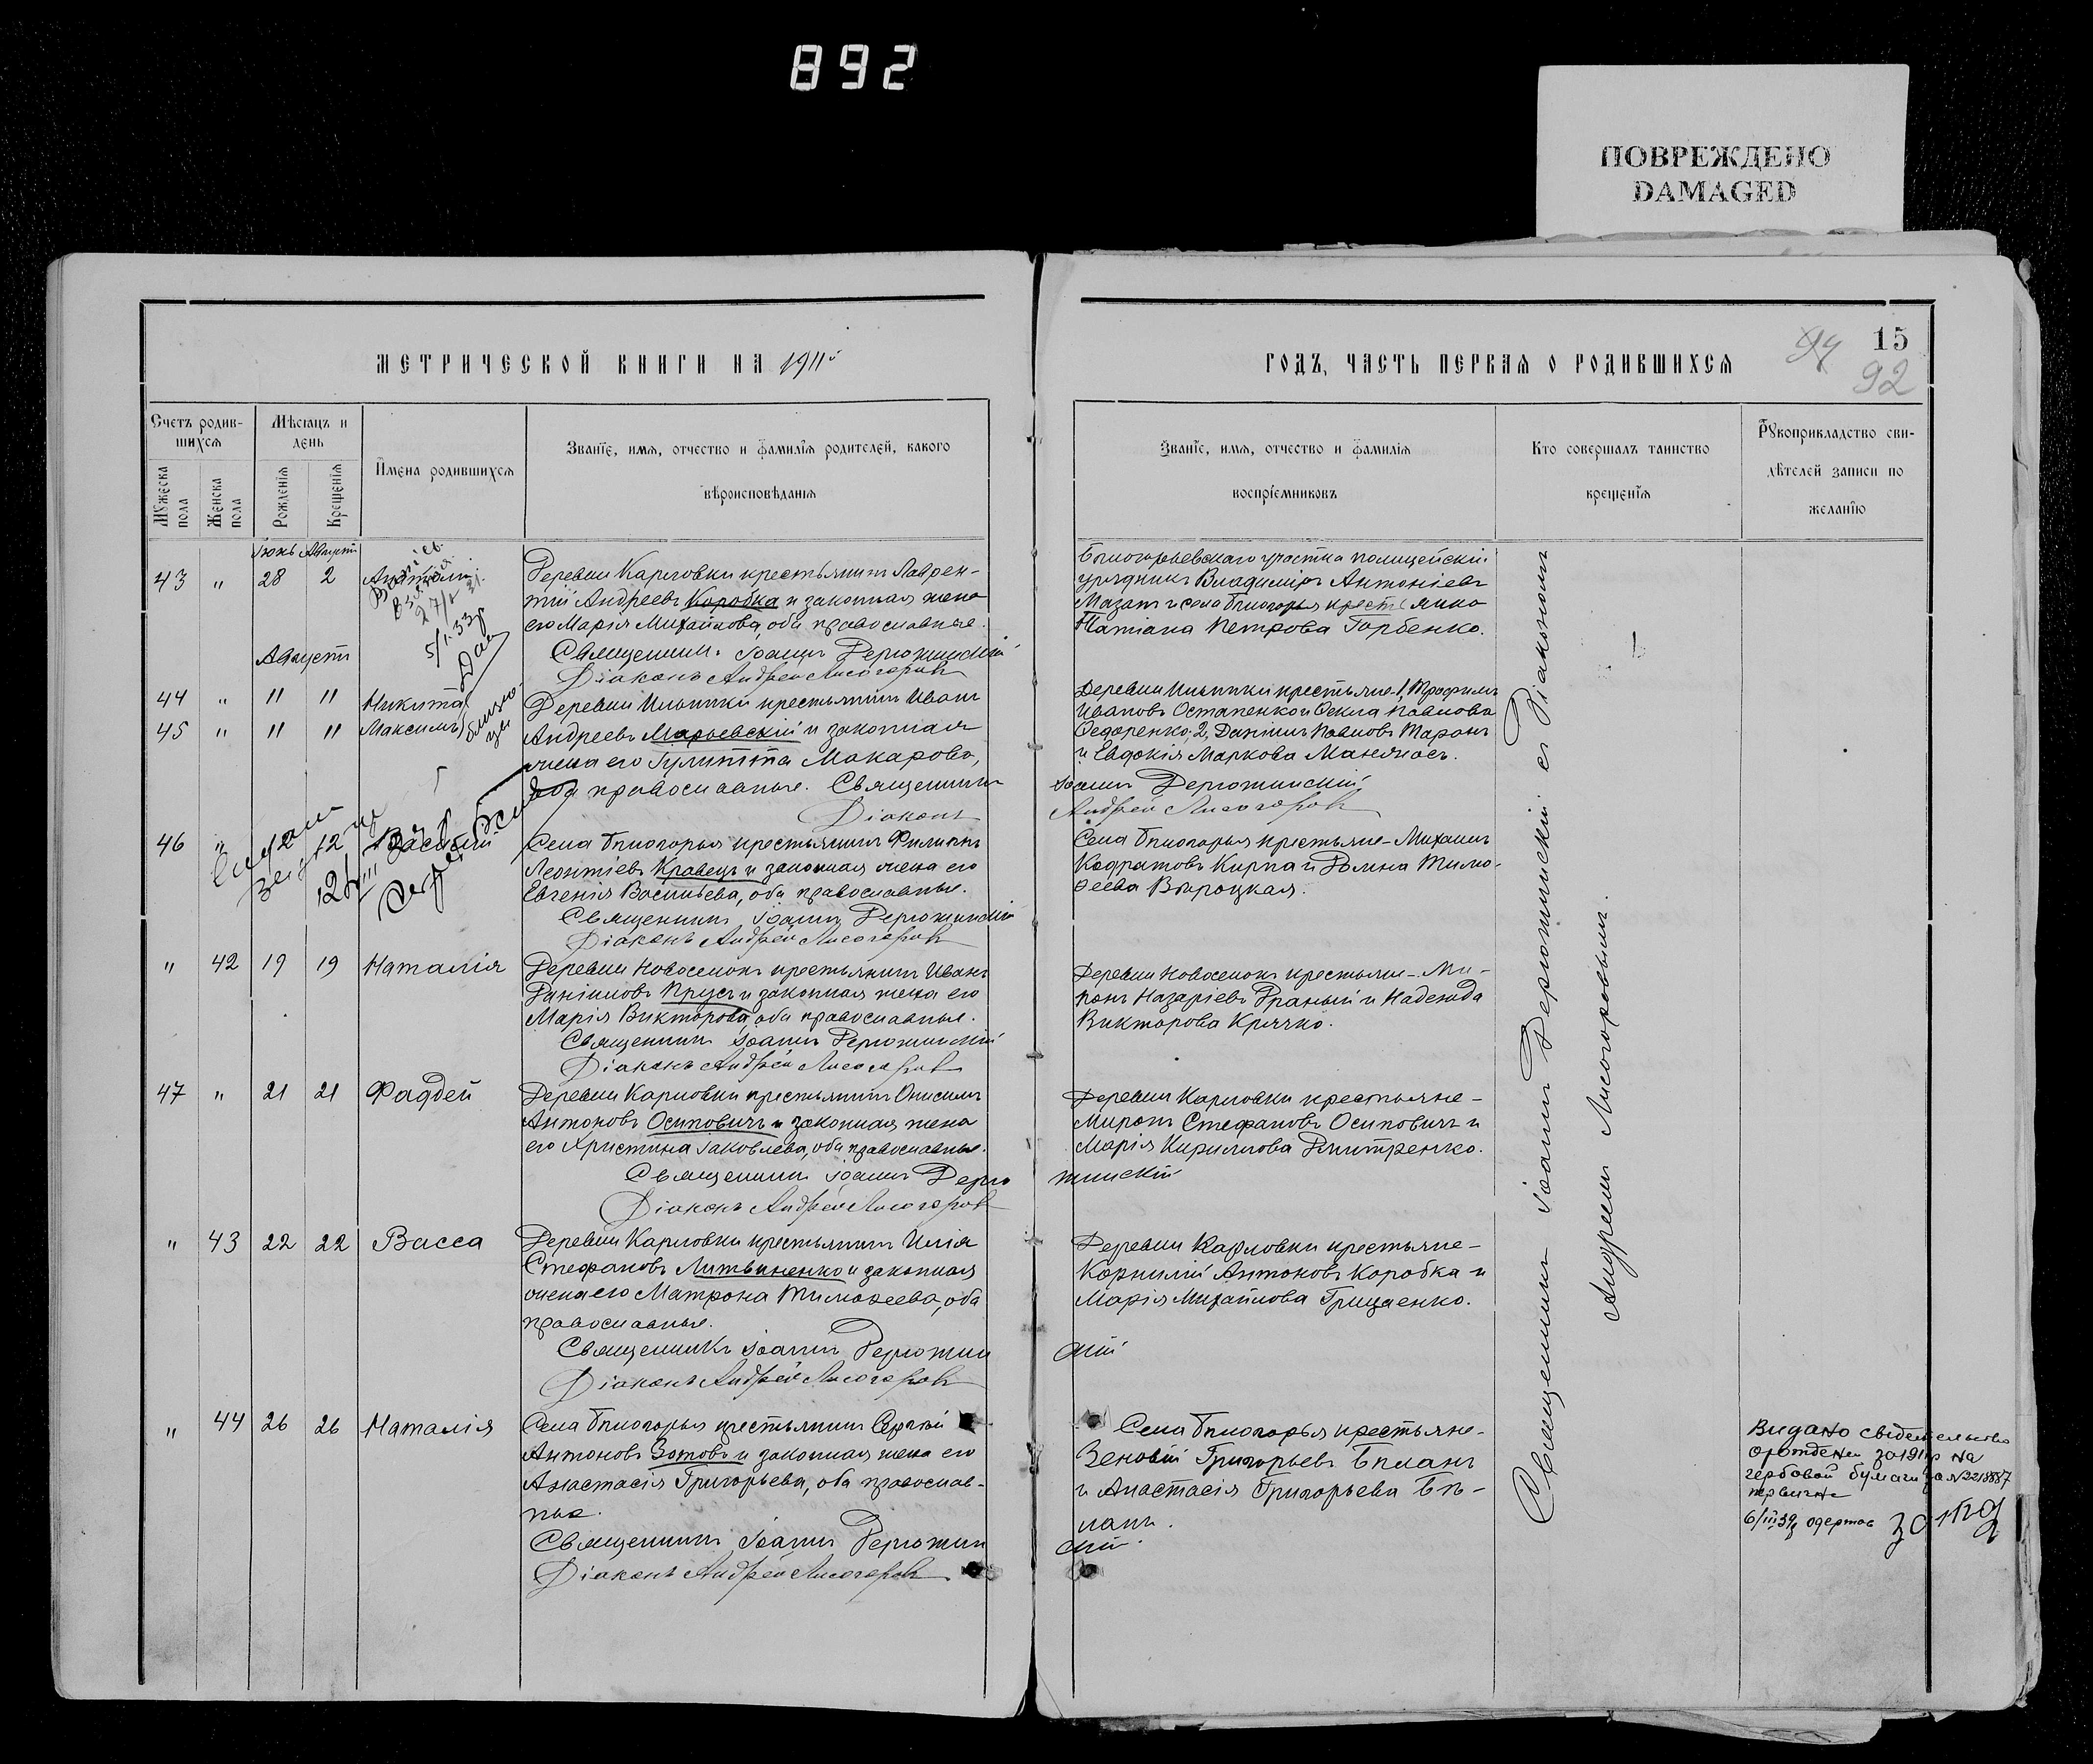 892
ПОВРЕЖДЕНО
DAMAGED
15
92
МЕТРИЧЕСКОЙ КНИГИ НА 1911й
ГОДЪ, ЧАСТЬ ПЕРВАЯ О РОДИВШИХСЯ
Счетъ родив-
шихся
Мужеска пола
Женска пола
Мѣсяцъ и
день
Рожденія
Крещенія
Имена родившихся
Званіе, имя, отчество и фамилія родителей, какого
вѣроисповѣданія
Званіе, имя, отчество и фамилія
воспріемниковъ
Кто совершалъ таинство
крещенія
Рукоприкладство сви-
дѣтелей записи по
желанію
Іюнь Августъ
43 " 28 2
Деревни Карловки крестьянинъ Лаврен-
тій Андреевъ Коробка и законная жена
его Марія Михайлова, оба православные.
Священникъ Іоаннъ Дерюжинскій
Діаконъ Андрей Лисогоровъ
Бѣлогорьевскаго участка полицейскій
урядникъ Владиміръ Антоніевъ
Мазан и села Бѣлогорья крестьянка
Татіана Петрова Горбенко.
27/V 31
5/I 33г
Августъ
44 " 11 11 Никита
45 " 11 11 Максимъ
близне-
цы
Деревни Ильинки крестьянинъ Иванъ
Андреевъ Марьевскій и законная
жена его Іулитта Макарова,
оба православные. Священникъ
Іоаннъ Дерюжинскій
Діаконъ
Андрей Лисогоровъ
Деревни Ильинки крестьяне 1, Трофимъ
Ивановъ Остапенко и Фекла Павлова
Федоренко, 2, Даніилъ Павловъ Таранъ
и Евдокія Маркова
46 " 12 12 Василій
Села Бѣлогорья крестьянинъ Филиппъ
Леонтіевъ Кравецъ и законная жена его
Евгенія Васильева, оба православные.
Священникъ Іоаннъ Дерюжинскій
Діаконъ Андрей Лисогоровъ
Села Бѣлогорья крестьяне - Михаилъ
Кодратовъ Кирпа и Домна Тимо-
феева
" 42 19 19 Наталія
Деревни Новоселокъ крестьянинъ Иванъ
Даніиловъ Прусъ и законная жена его
Марія Викторова, оба православные.
Священникъ Іоаннъ Дерюжинскій
Діаконъ Андрей Лисогоровъ
Деревни Новоселокъ крестьяне - Ми-
ронъ Назаріевъ Драный и Надежда
Викторова Крячко.
47 " 21 21 Фаддей
Деревни Карловки крестьянинъ Онисимъ
Антоновъ Осиповичъ и законная жена
его Христина Іаковлева, оба православные.
Священникъ Іоаннъ Дерю
жинскій
Діаконъ Андрей Лисогоровъ
Деревни Карловки крестьяне -
Миронъ Стефановъ Осиповичъ и
Марія Кириллова Дмитренко.
" 43 22 22 Васса
Деревни Карловки крестьянинъ Илія
Стефановъ Литвиненко и законная
жена его Матрона Тимофеева, оба
православные.
Священникъ Іоаннъ Дерюжин
скій
Діаконъ Андрей Лисогоровъ
Деревни Карловки крестьяне -
Корнилій Антоновъ Коробка и
Марія Михайлова Грицаенко.
" 44 26 26 Наталія
Села Бѣлогорья крестьянинъ Сергій
Антоновъ Зотовъ и законная жена его
Анастасія Григорьева, оба православ-
ные.
Священникъ Іоаннъ Дерюжин
скій
Діаконъ Андрей Лисогоровъ
Села Бѣлогорья крестьяне -
Зеновій Григорьевъ Бѣланъ
и Анастасія Григорьева Бѣ-
ланъ.
Священникъ Іоаннъ Дерюжинскій съ Діакономъ
Андреемъ Лисогоровымъ.
Видано свідетельство
о рождении за 1911р на
гербовой бумаги за №
6/III 39р